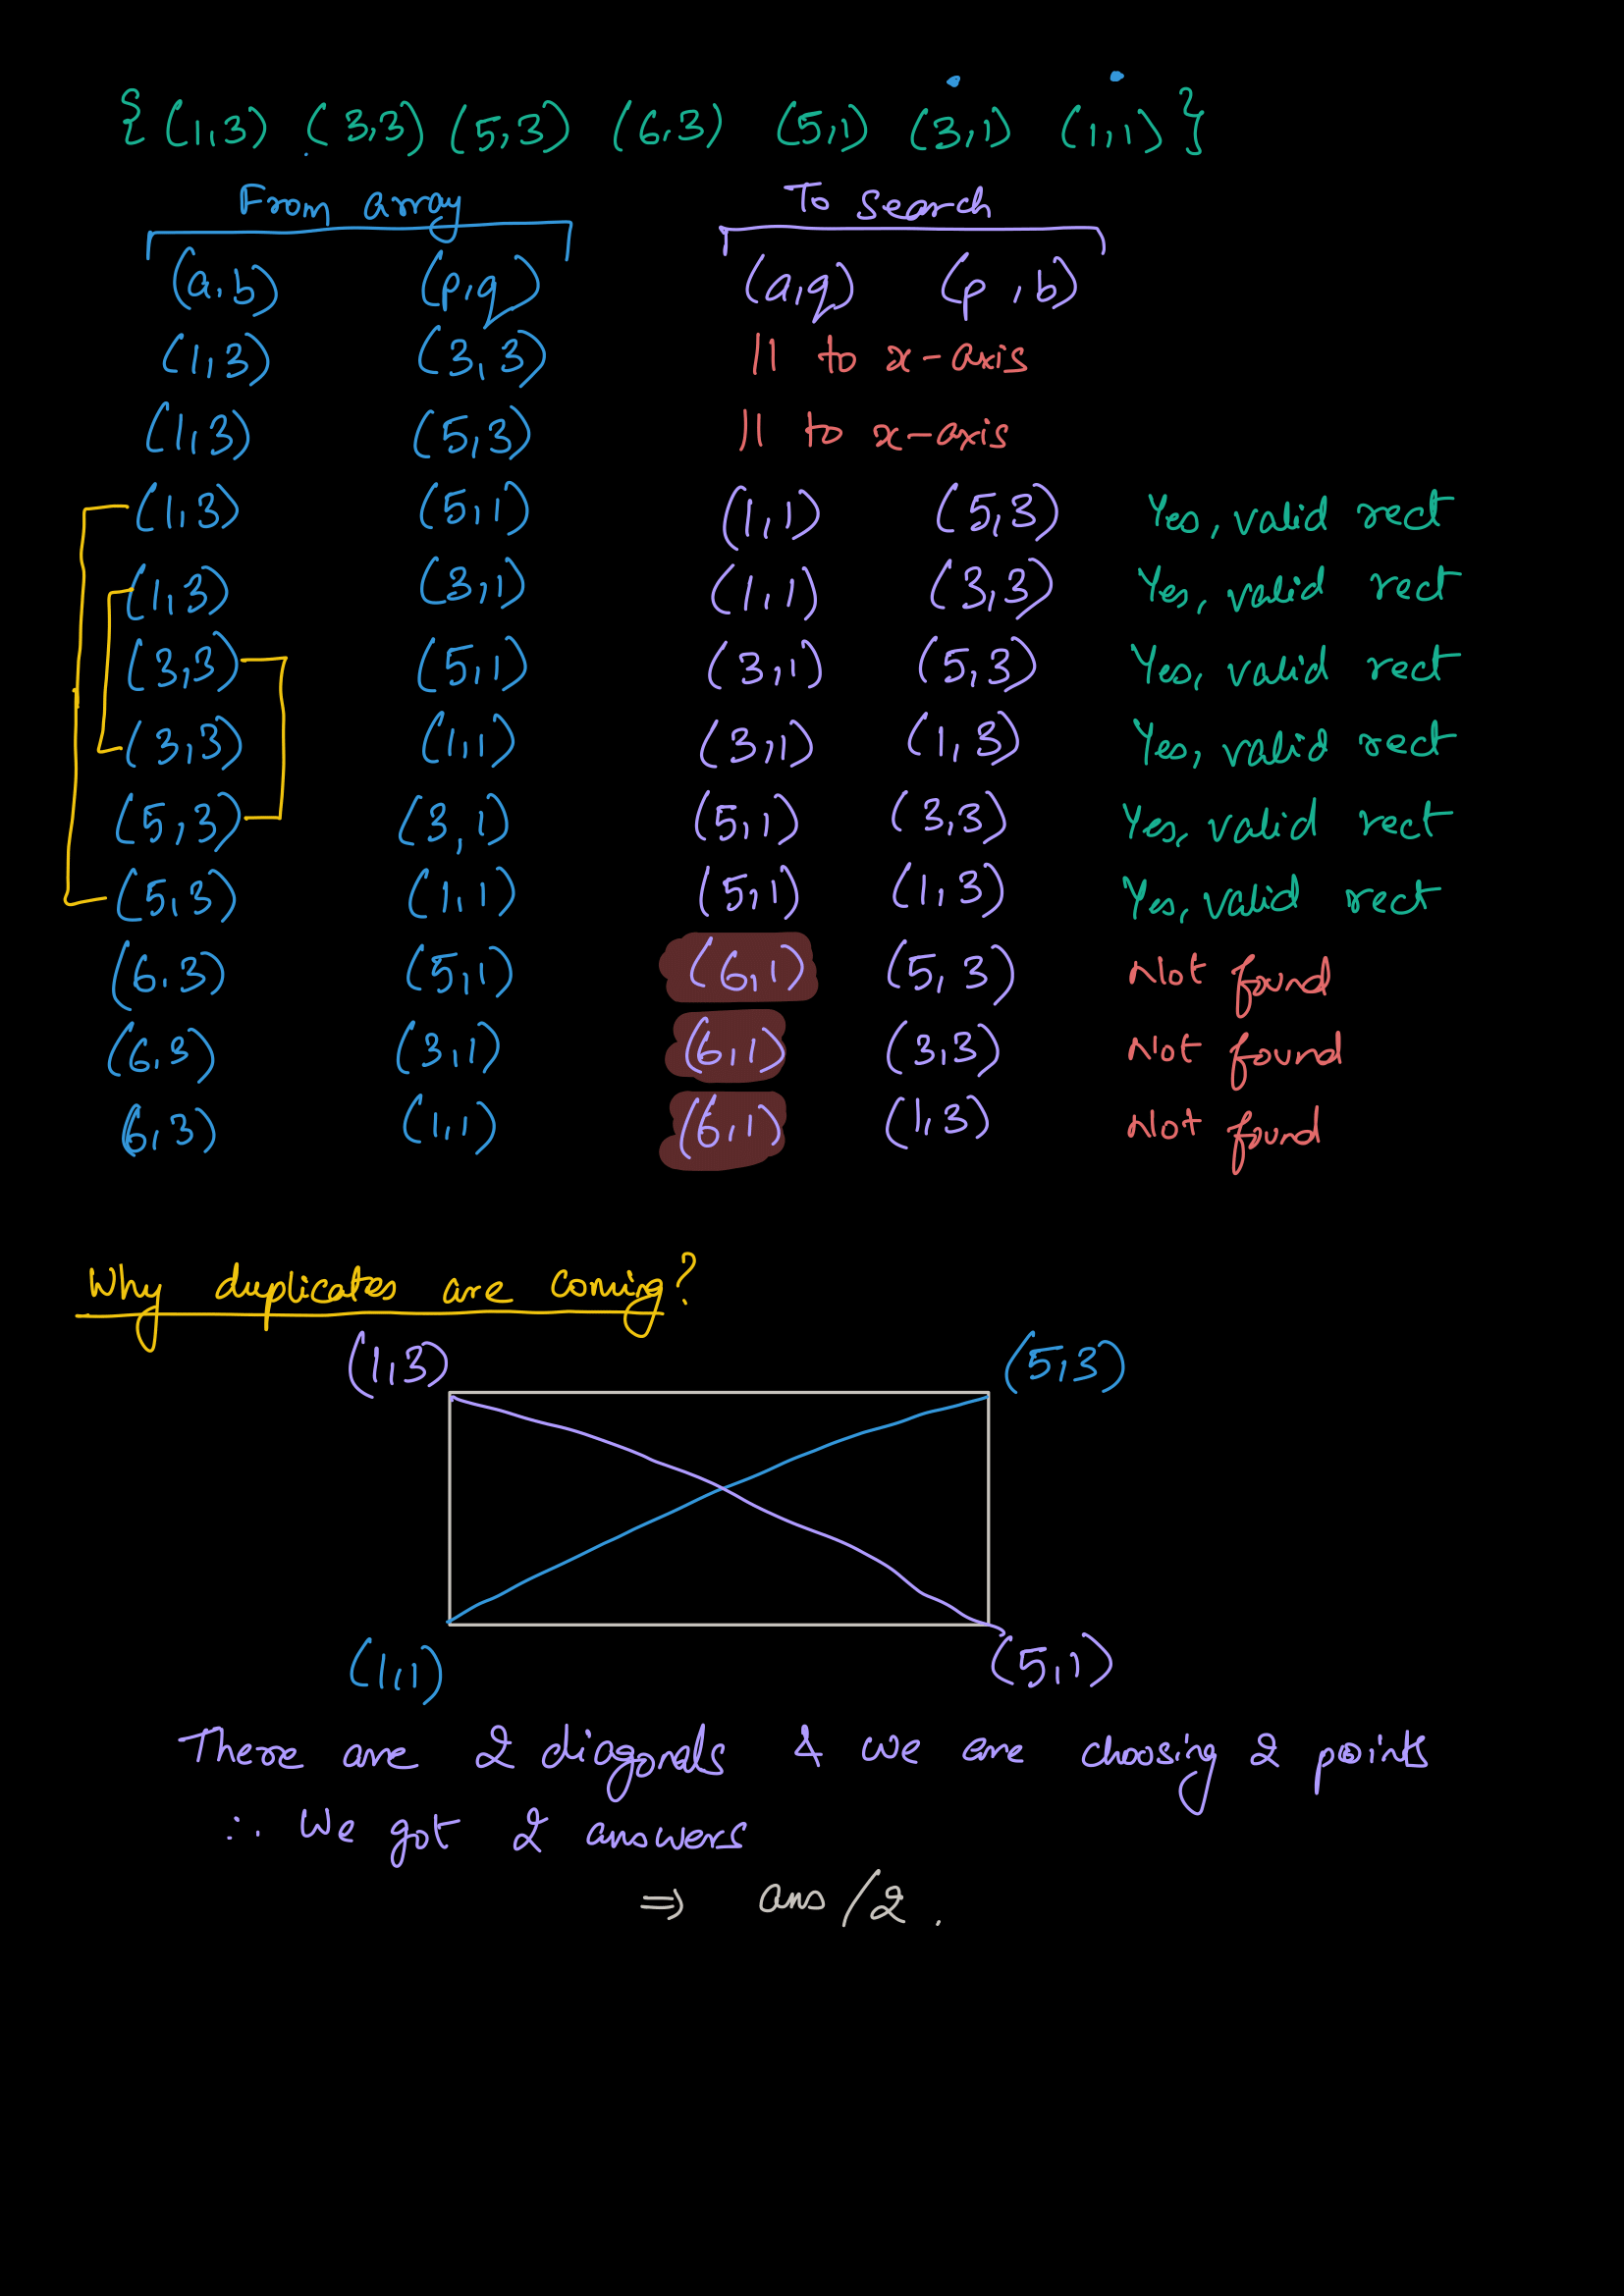 { (1,3) (3,3) (5,3) (6,3) (5,1) (3,1) (1,1) }
From array To search
(a,b) (p,q) (a,q) (p,b)
(1,3) (3,3) || to x-axis
(1,3) (5,3) || to x-axis
(1,3) (5,1) (1,1) (5,3) Yes, valid rect
(1,3) (3,1) (1,1) (3,3) Yes, valid rect
(3,3) (5,1) (3,1) (5,3) Yes, valid rect
(3,3) (1,1) (3,1) (1,3) Yes, valid rect
(5,3) (3,1) (5,1) (3,3) Yes, valid rect
(5,3) (1,1) (5,1) (1,3) Yes, valid rect
(6,3) (5,1) (6,1) (5,3) Not found
(6,3) (3,1) (6,1) (3,3) Not found
(6,3) (1,1) (6,1) (1,3) Not found
Why duplicates are coming?
(1,3) (5,3)
(1,1) (5,1)
There are 2 diagonals & we are choosing 2 points
∴ We got 2 answers
⇒ ans/2.